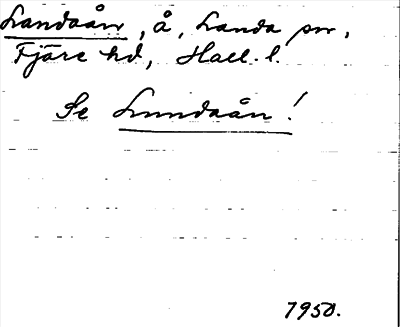 Landaån, å, Landa sn,
Fjäre hd, Hall. l.
Se Lundaån!
1950.